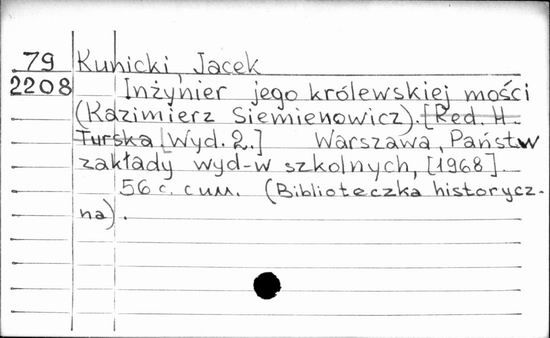 79 Kunicki, Jacek
2208 Inżynier jego królewskiej mości
(Kazimierz Siemienowicz). [Red. H.
Turska [Wyd. 2.] Warszawa, Państw
zakłady wyd-w szkolnych, [1968].
56 с. с илл. (Biblioteczka historycz-
na).